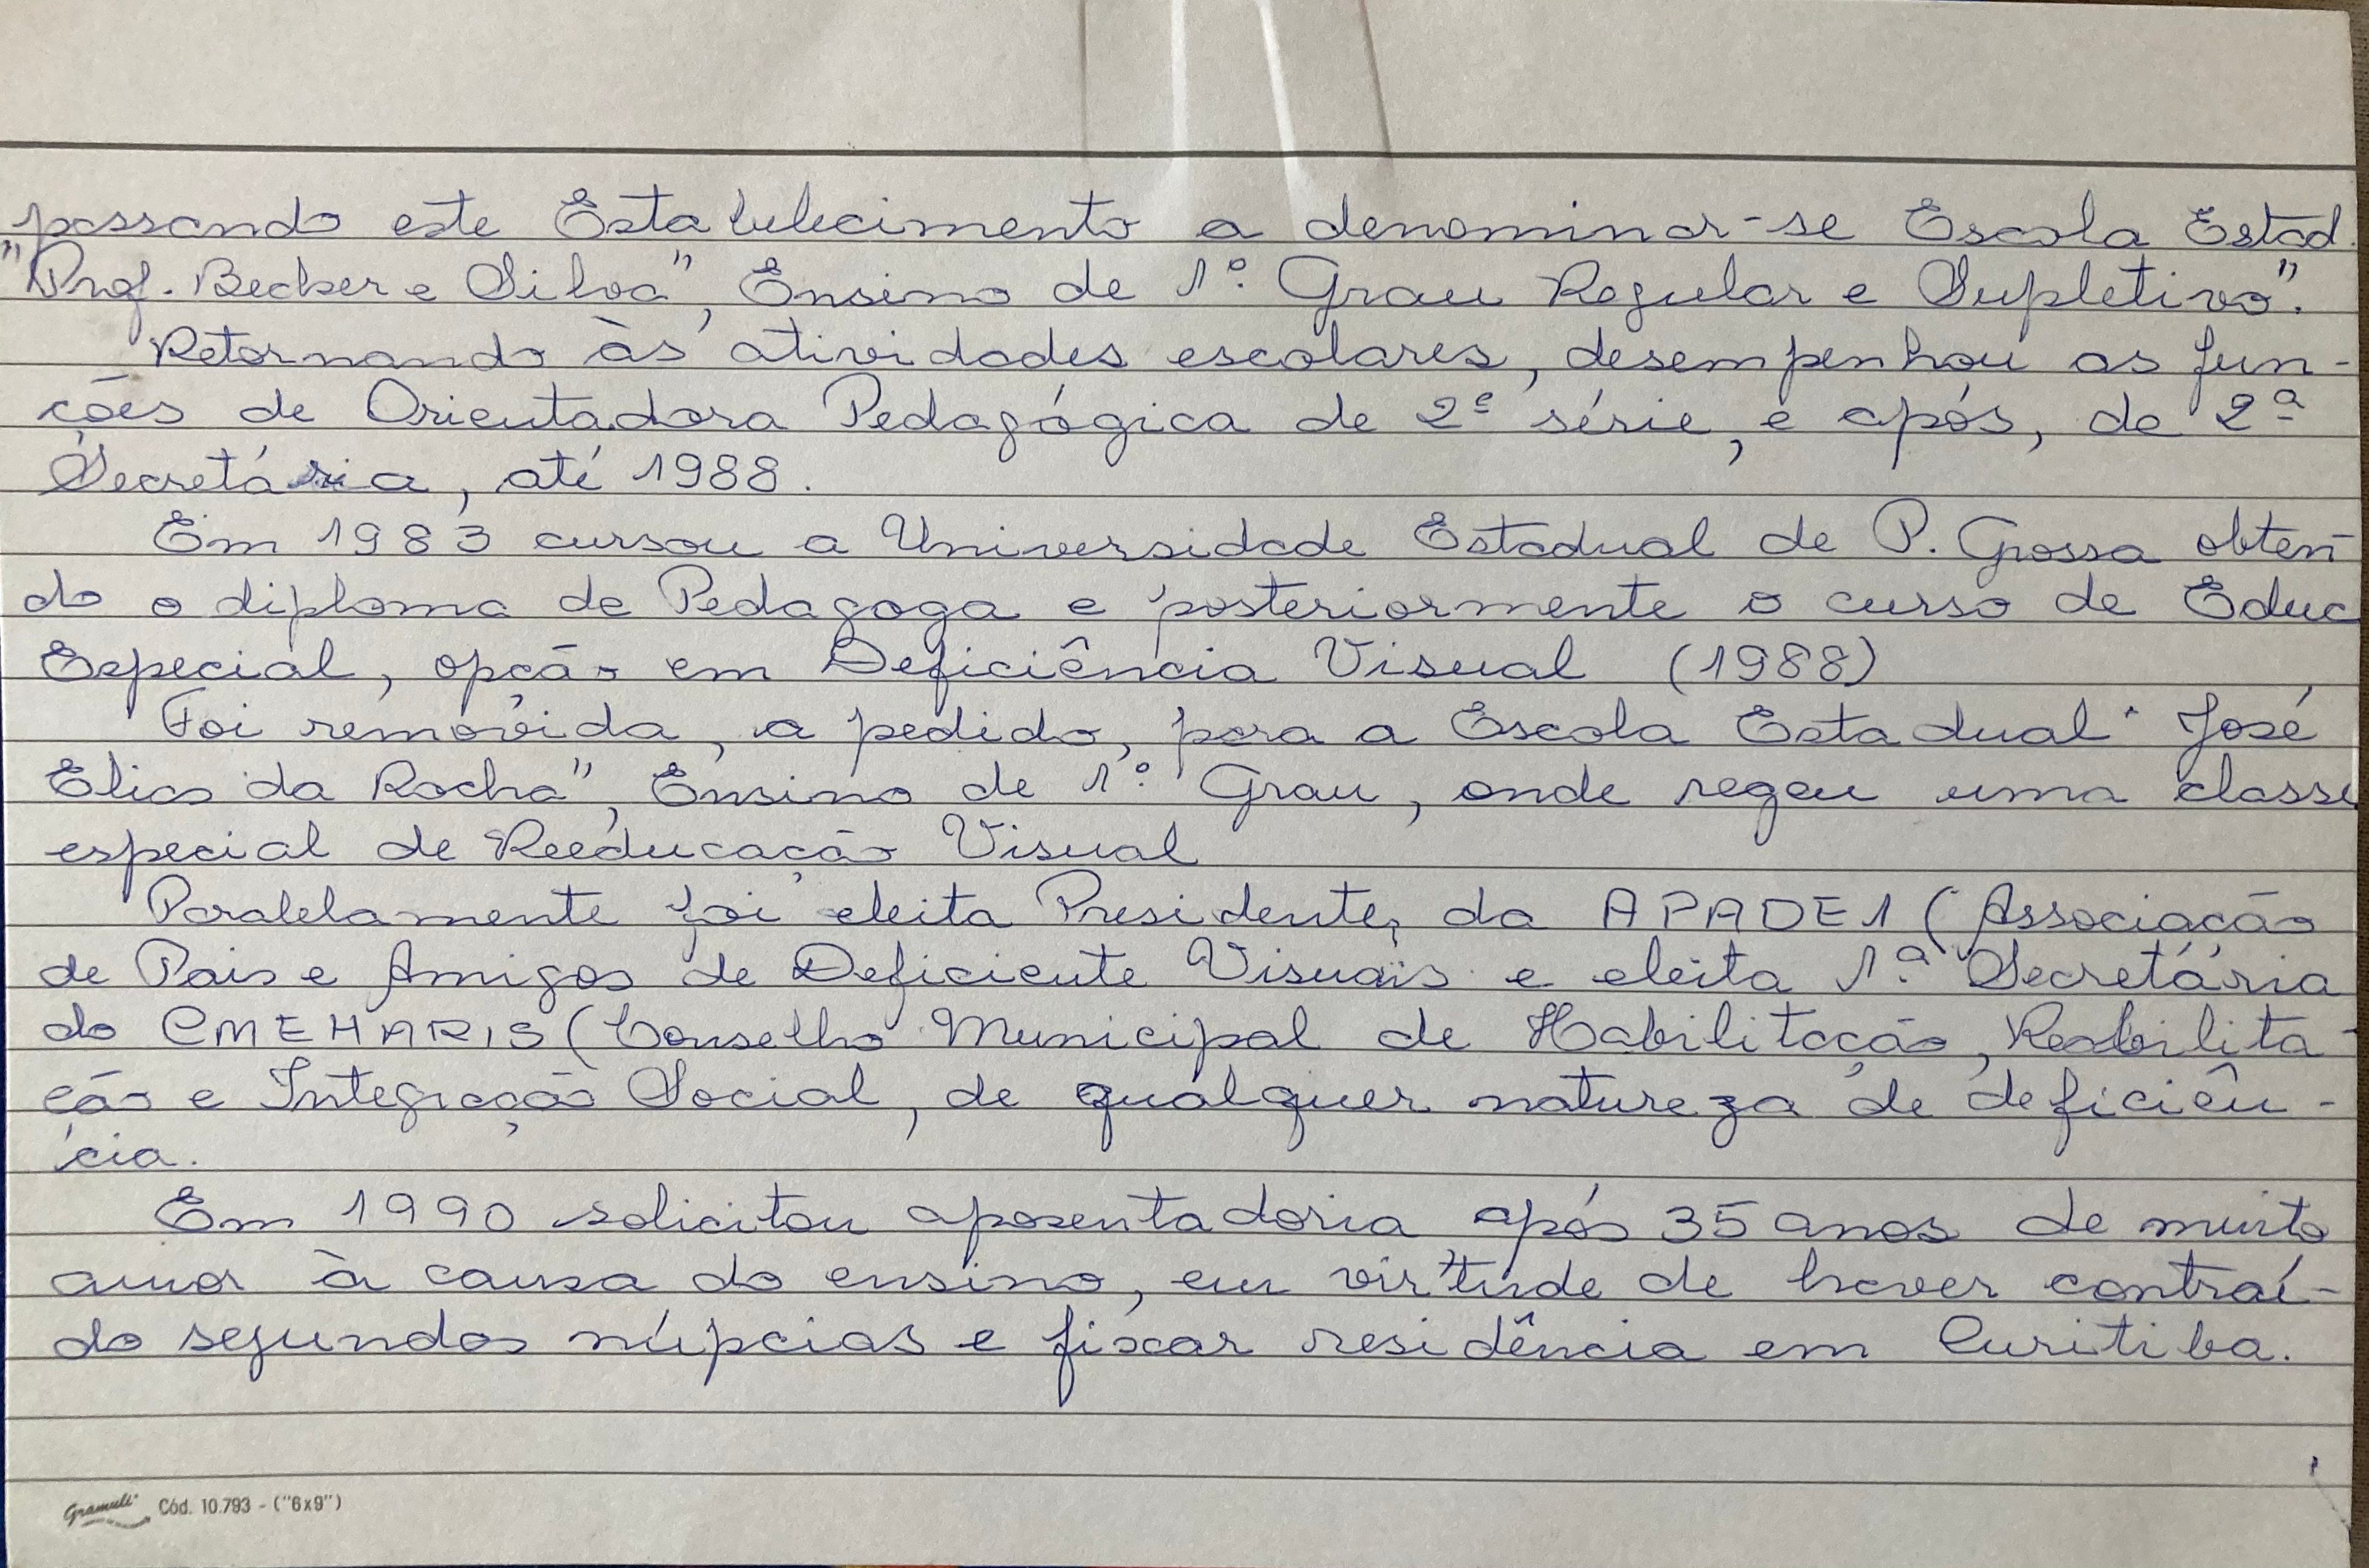 passando este Estabelecimento a denominar-se Escola Estad.
"Prof. Becker e Silva", Ensino de 1º Grau Regular e Supletivo".
Retornando às atividades escolares, desempenhou as fun-
ções de Orientadora Pedagógica de 2ª série, e após, de 2ª
Secretária, até 1988.
Em 1983 cursou a Universidade Estadual de P. Grossa obten-
do o diploma de Pedagoga e posteriormente o curso de Educ
Especial, opção em Deficiência Visual (1988)
Foi removida, a pedido, para a Escola Estadual "José
Elias da Rocha", Ensino de 1º Grau, onde regeu uma classe
especial de Reeducação Visual
Paralelamente foi eleita Presidente, da APADE1 (Associação
de Pais e Amigos de Deficiente Visuais e eleita 1ª Secretária
do CMEHARIS (Conselho Municipal de Habilitação, Reabilita-
ção e Integração Social, de qualquer natureza de deficiên-
cia.
Em 1990 solicitou aposentadoria após 35 anos de muito
amor à causa do ensino, em virtude de haver contraí-
do segundas núpcias e fixar residência em Curitiba.
Gramuli Cód. 10.793 - ("6x9")